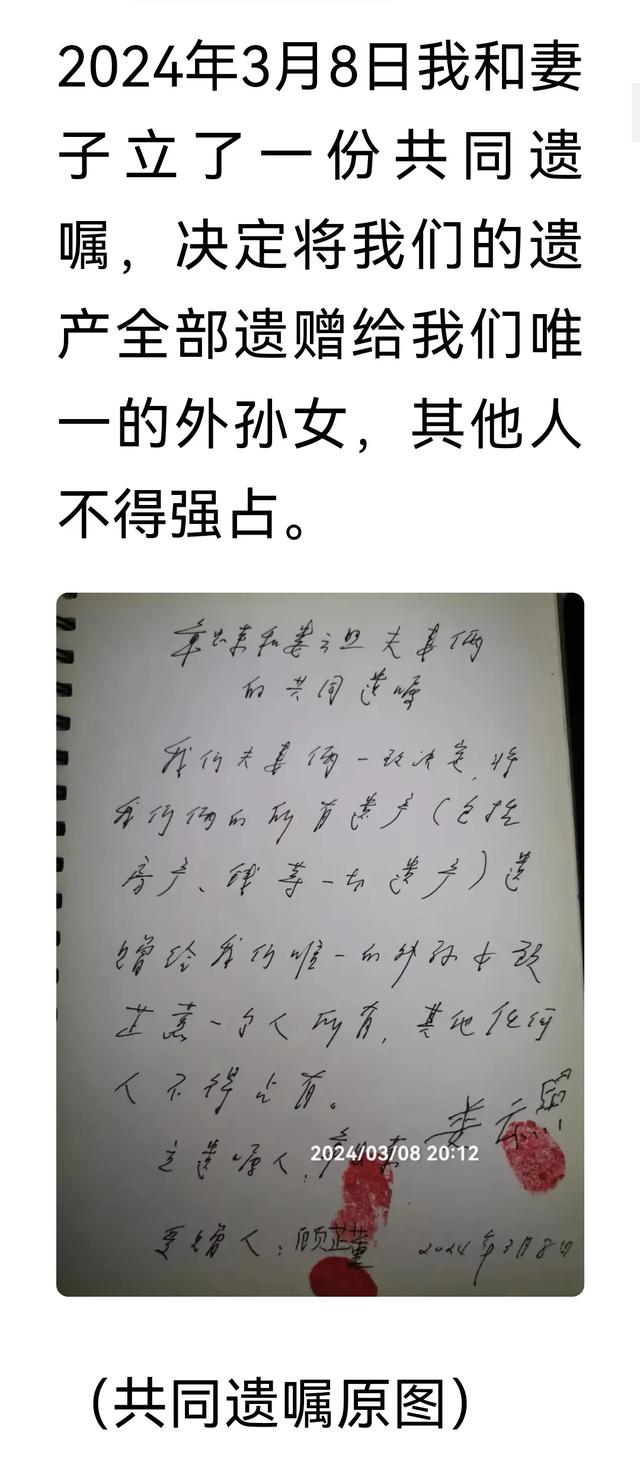 2024年3月8日我和妻
子立了一份共同遗
嘱，决定将我们的遗
产全部遗赠给我们唯
一的外孙女，其他人
不得强占。
和娄云旦夫妻俩
的共同遗嘱
我们夫妻俩一致决定，将
我们俩的所有遗产（包括
房产、钱等一切遗产）遗
赠给我们唯一的外孙女顾
芷薏一个人所有，其他任何
人不得占有。
娄云
立遗嘱人：
2024/03/08 20:12
受赠人：顾芷 2024年3月8日
（共同遗嘱原图）